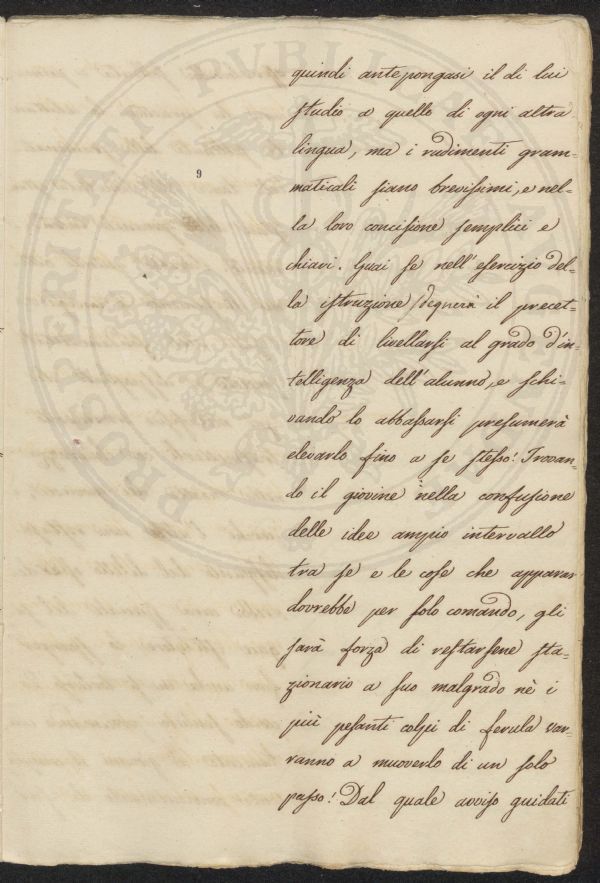 quindi antepongasi il di lui
studio a quello di ogni altra
lingua, ma i rudimenti gram-
maticali siano brevissimi, e nel-
la loro concisione semplici e
chiari. Guai se nell'esercizio del-
la istruzione sdegnerà il precet-
tore di livellarsi al grado d'in-
telligenza dell'alunno, e schi-
vando lo abbassarsi presumerà
elevarlo fino a se stesso! Trovan-
do il giovine nella confusione
delle idee ampio intervallo
tra se e le cose che apparar
dovrebbe per solo comando, gli
sarà forza di restarsene sta-
zionario a suo malgrado nè i
più pesanti colpi di ferula var-
ranno a muoverlo di un solo
passo! Dal quale avviso guidati
9
PROSPERITATI PVBLICAE